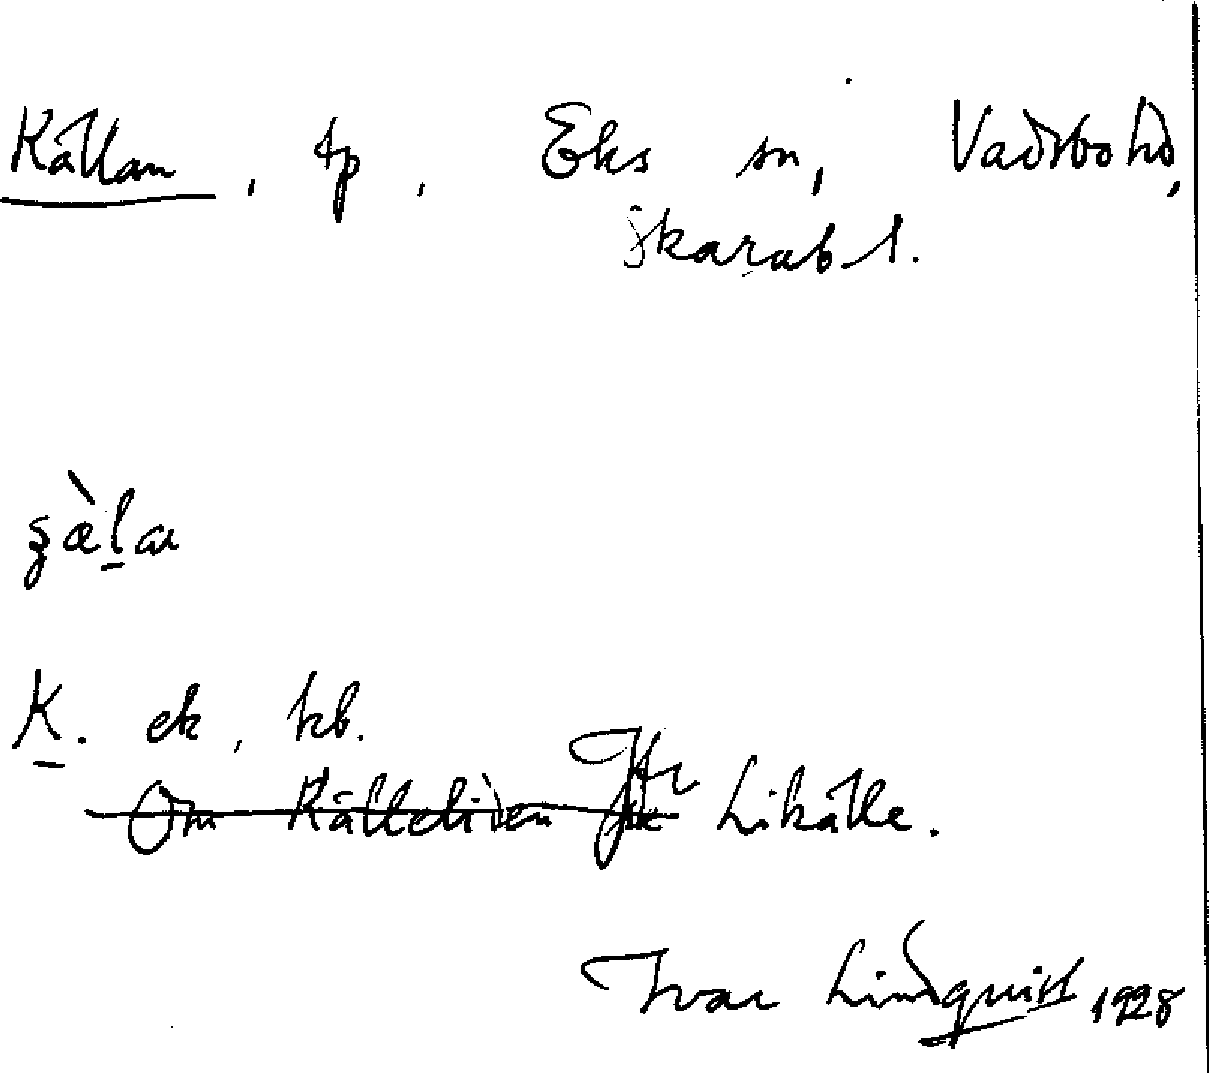 Källan, tp, Eks sn, Vadsbo hd,
Skarab. l.
K. ek, kb.
Om Källeliden Jfr Likälle.
Ivar Lindquist 1928